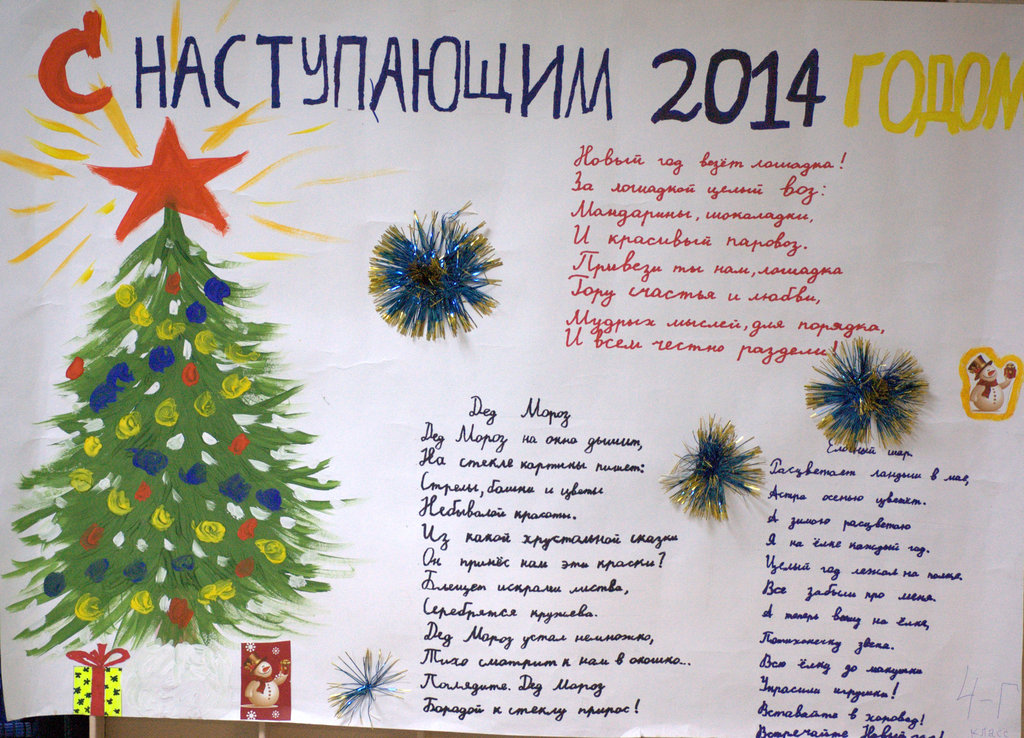 С НАСТУПАЮЩИМ 2014 ГОДОМ
Новый год везёт лошадка!
За лошадкой целый воз:
Мандарины, шоколадки,
И красивый паровоз.
Привези ты нам, лошадка
Гору счастья и любви,
Мудрых мыслей, для порядка,
И всем честно раздели!
Дед Мороз
Дед Мороз на окна дышит,
На стекле картины пишет:
Стрелы, башни и цветы
Небывалой красоты.
Из какой хрустальной сказки
Он принёс нам эти краски?
Блещет искрами листва,
Серебрятся кружева.
Дед Мороз устал немножко,
Тихо смотрит к нам в окошко...
Поглядите. Дед Мороз
Бородой к стеклу прирос!
Елочный шар
Расцветает ландыш в мае,
Астра осенью цветёт.
А зимою расцветаю
Я на ёлке каждый год.
Целый год лежал на полке.
Все забыли про меня.
А теперь вишу на ёлке,
Потихонечку звеня.
Всю ёлку до макушки
Украсили игрушки!
Вставайте в хоровод!
Встречайте Новый год!
4-Г
класс